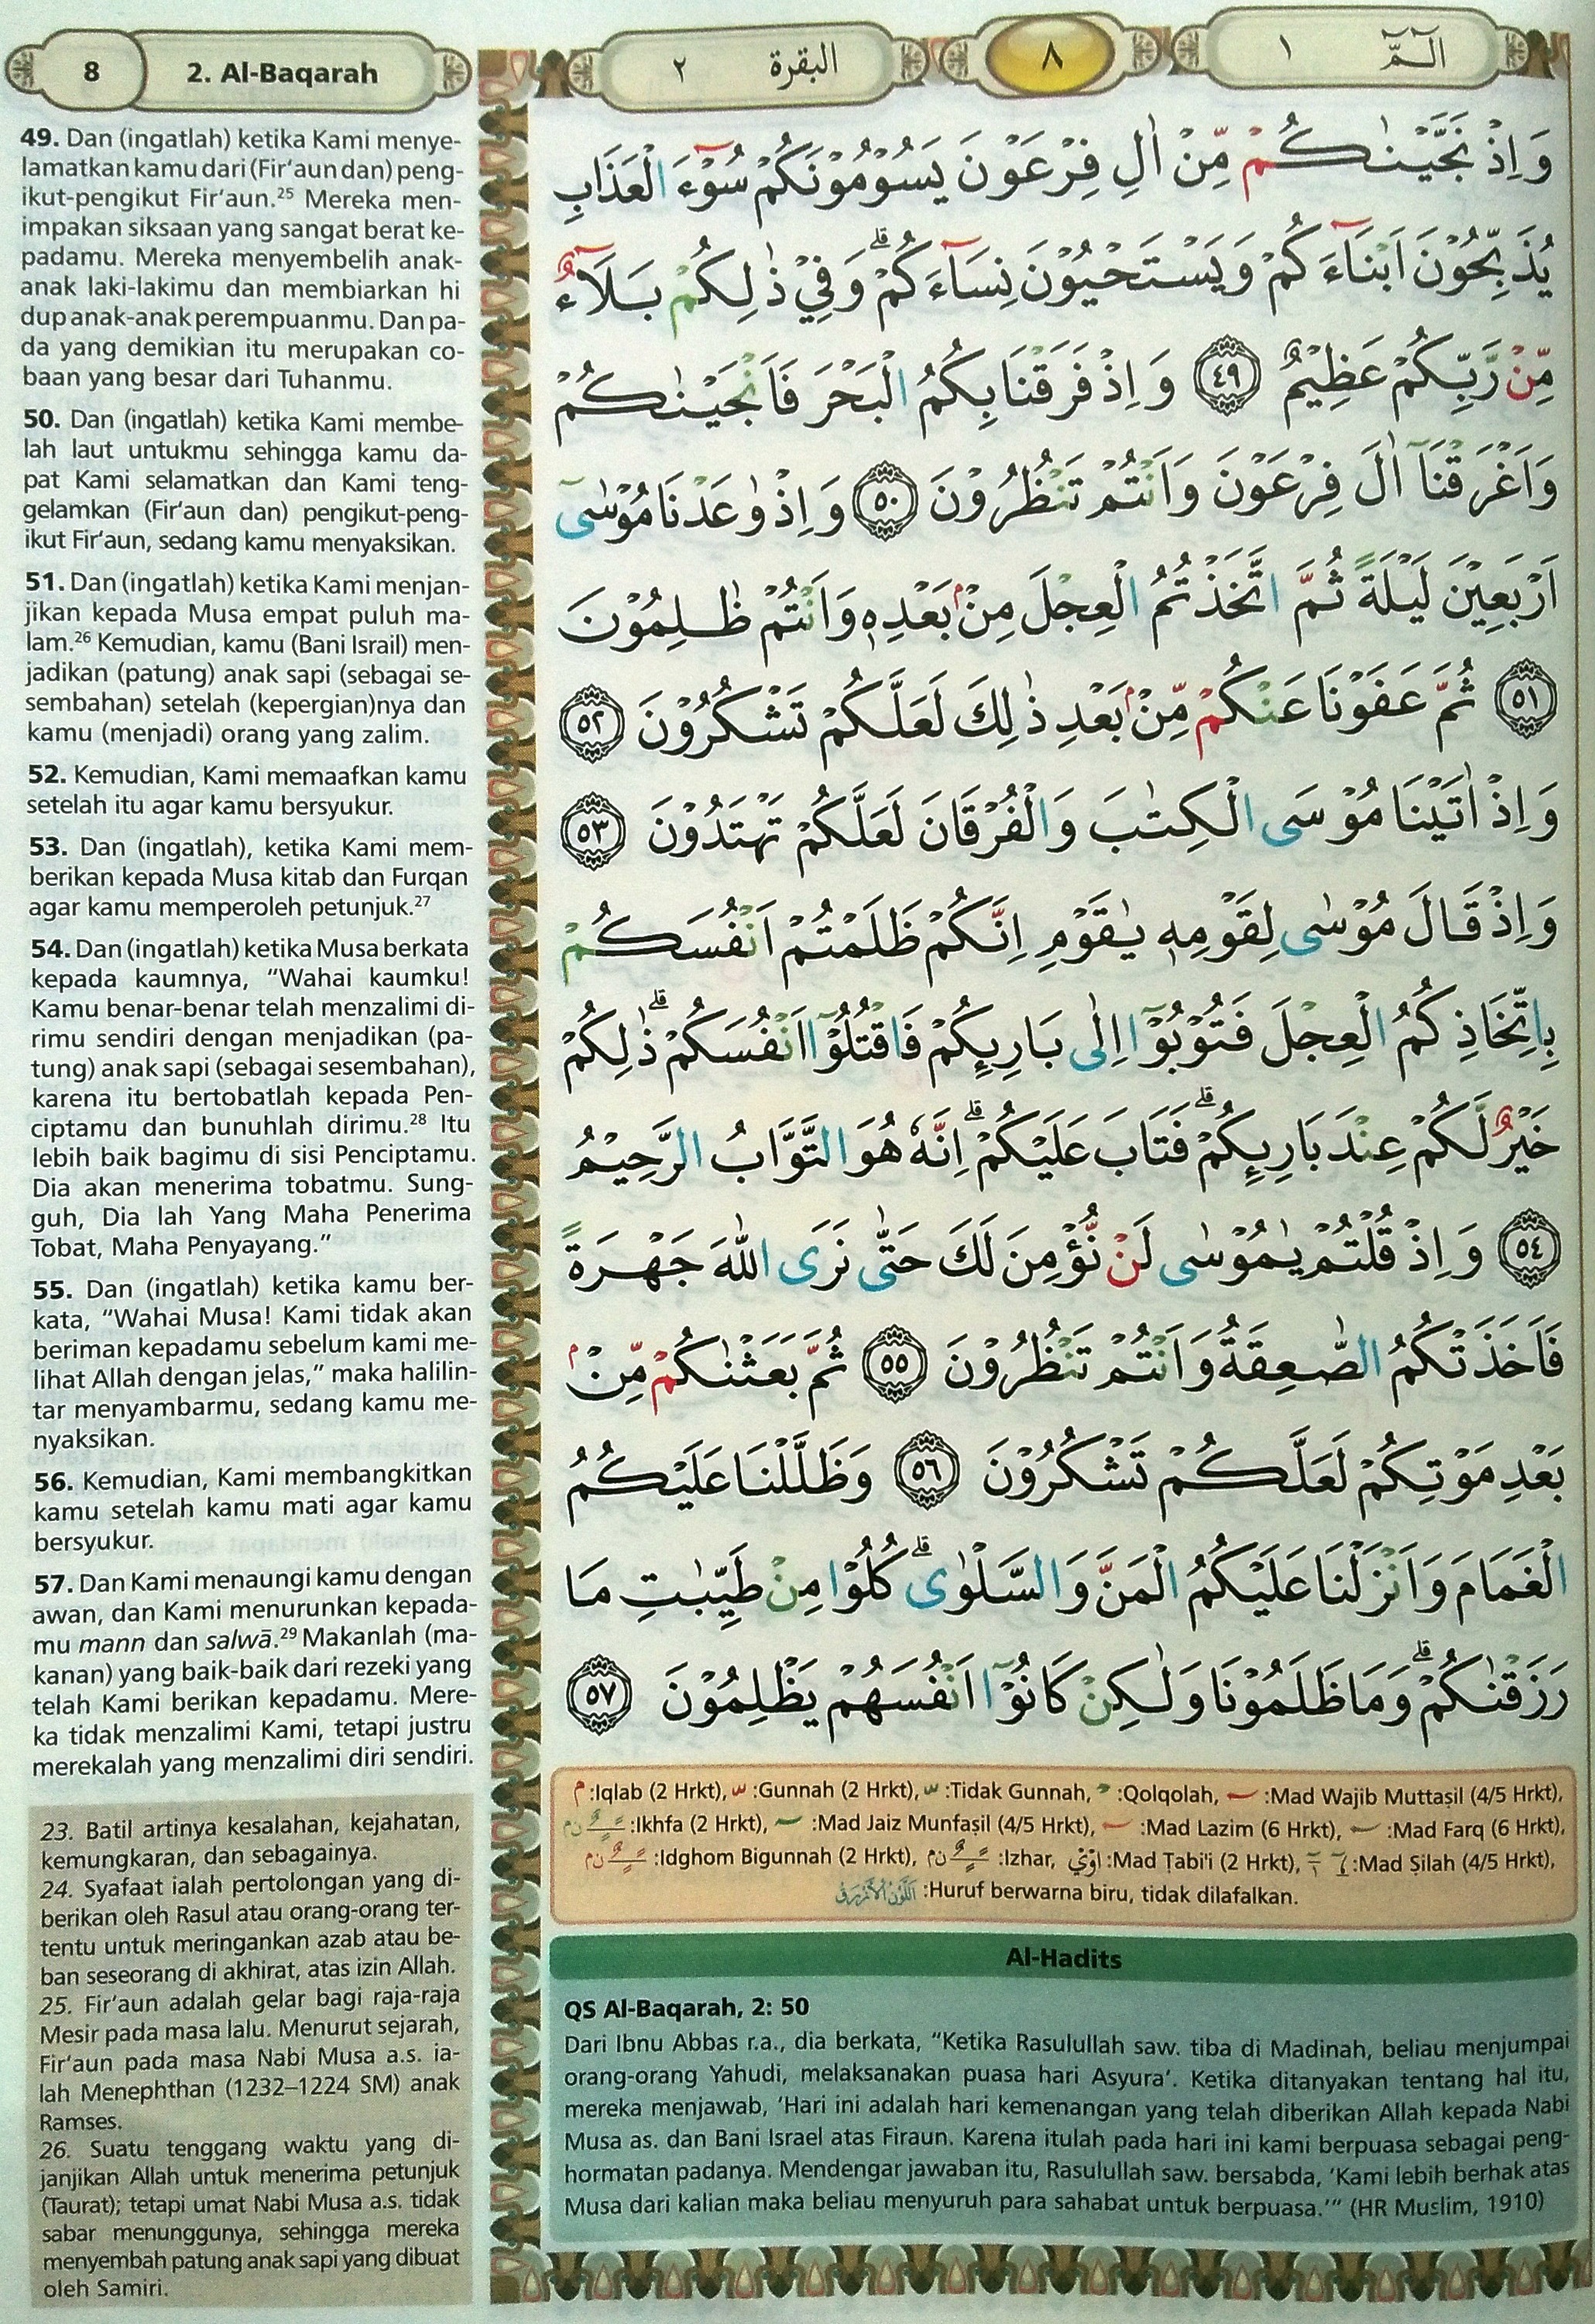 8
2. Al-Baqarah
البقرة ٢
٨
الٓـمّٓ ١
49. Dan (ingatlah) ketika Kami menye-
lamatkan kamu dari (Fir‘aun dan) peng-
ikut-pengikut Fir‘aun.²⁵ Mereka men-
impakan siksaan yang sangat berat ke-
padamu. Mereka menyembelih anak-
anak laki-lakimu dan membiarkan hi
dup anak-anak perempuanmu. Dan pa-
da yang demikian itu merupakan co-
baan yang besar dari Tuhanmu.
50. Dan (ingatlah) ketika Kami membe-
lah laut untukmu sehingga kamu da-
pat Kami selamatkan dan Kami teng-
gelamkan (Fir‘aun dan) pengikut-peng-
ikut Fir‘aun, sedang kamu menyaksikan.
51. Dan (ingatlah) ketika Kami menjan-
jikan kepada Musa empat puluh ma-
lam.²⁶ Kemudian, kamu (Bani Israil) men-
jadikan (patung) anak sapi (sebagai se-
sembahan) setelah (kepergian)nya dan
kamu (menjadi) orang yang zalim.
52. Kemudian, Kami memaafkan kamu
setelah itu agar kamu bersyukur.
53. Dan (ingatlah), ketika Kami mem-
berikan kepada Musa kitab dan Furqan
agar kamu memperoleh petunjuk.²⁷
54. Dan (ingatlah) ketika Musa berkata
kepada kaumnya, “Wahai kaumku!
Kamu benar-benar telah menzalimi di-
rimu sendiri dengan menjadikan (pa-
tung) anak sapi (sebagai sesembahan),
karena itu bertobatlah kepada Pen-
ciptamu dan bunuhlah dirimu.²⁸ Itu
lebih baik bagimu di sisi Penciptamu.
Dia akan menerima tobatmu. Sung-
guh, Dia lah Yang Maha Penerima
Tobat, Maha Penyayang.”
55. Dan (ingatlah) ketika kamu ber-
kata, “Wahai Musa! Kami tidak akan
beriman kepadamu sebelum kami me-
lihat Allah dengan jelas,” maka halilin-
tar menyambarmu, sedang kamu me-
nyaksikan.
56. Kemudian, Kami membangkitkan
kamu setelah kamu mati agar kamu
bersyukur.
57. Dan Kami menaungi kamu dengan
awan, dan Kami menurunkan kepada-
mu mann dan salwā.²⁹ Makanlah (ma-
kanan) yang baik-baik dari rezeki yang
telah Kami berikan kepadamu. Mere-
ka tidak menzalimi Kami, tetapi justru
merekalah yang menzalimi diri sendiri.
23. Batil artinya kesalahan, kejahatan,
kemungkaran, dan sebagainya.
24. Syafaat ialah pertolongan yang di-
berikan oleh Rasul atau orang-orang ter-
tentu untuk meringankan azab atau be-
ban seseorang di akhirat, atas izin Allah.
25. Fir‘aun adalah gelar bagi raja-raja
Mesir pada masa lalu. Menurut sejarah,
Fir‘aun pada masa Nabi Musa a.s. ia-
lah Menephthan (1232–1224 SM) anak
Ramses.
26. Suatu tenggang waktu yang di-
janjikan Allah untuk menerima petunjuk
(Taurat); tetapi umat Nabi Musa a.s. tidak
sabar menunggunya, sehingga mereka
menyembah patung anak sapi yang dibuat
oleh Samiri.
وَاِذْ نَجَّيْنٰكُمْ مِّنْ اٰلِ فِرْعَوْنَ يَسُوْمُوْنَكُمْ سُوْۤءَ الْعَذَابِ
يُذَبِّحُوْنَ اَبْنَاۤءَكُمْ وَيَسْتَحْيُوْنَ نِسَاۤءَكُمْ ۗ وَفِيْ ذٰلِكُمْ بَلَاۤءٌ
مِّنْ رَّبِّكُمْ عَظِيْمٌ ٤٩ وَاِذْ فَرَقْنَا بِكُمُ الْبَحْرَ فَاَنْجَيْنٰكُمْ
وَاَغْرَقْنَآ اٰلَ فِرْعَوْنَ وَاَنْتُمْ تَنْظُرُوْنَ ٥٠ وَاِذْ وٰعَدْنَا مُوْسٰىٓ
اَرْبَعِيْنَ لَيْلَةً ثُمَّ اتَّخَذْتُمُ الْعِجْلَ مِنْۢ بَعْدِهٖ وَاَنْتُمْ ظٰلِمُوْنَ
٥١ ثُمَّ عَفَوْنَا عَنْكُمْ مِّنْۢ بَعْدِ ذٰلِكَ لَعَلَّكُمْ تَشْكُرُوْنَ ٥٢
وَاِذْ اٰتَيْنَا مُوْسَى الْكِتٰبَ وَالْفُرْقَانَ لَعَلَّكُمْ تَهْتَدُوْنَ ٥٣
وَاِذْ قَالَ مُوْسٰى لِقَوْمِهٖ يٰقَوْمِ اِنَّكُمْ ظَلَمْتُمْ اَنْفُسَكُمْ
بِاتِّخَاذِكُمُ الْعِجْلَ فَتُوْبُوْٓا اِلٰى بَارِىِٕكُمْ فَاقْتُلُوْٓا اَنْفُسَكُمْ ۗ ذٰلِكُمْ
خَيْرٌ لَّكُمْ عِنْدَ بَارِىِٕكُمْ ۗ فَتَابَ عَلَيْكُمْ ۗ اِنَّهٗ هُوَ التَّوَّابُ الرَّحِيْمُ
٥٤ وَاِذْ قُلْتُمْ يٰمُوْسٰى لَنْ نُّؤْمِنَ لَكَ حَتّٰى نَرَى اللّٰهَ جَهْرَةً
فَاَخَذَتْكُمُ الصّٰعِقَةُ وَاَنْتُمْ تَنْظُرُوْنَ ٥٥ ثُمَّ بَعَثْنٰكُمْ مِّنْۢ
بَعْدِ مَوْتِكُمْ لَعَلَّكُمْ تَشْكُرُوْنَ ٥٦ وَظَلَّلْنَا عَلَيْكُمُ
الْغَمَامَ وَاَنْزَلْنَا عَلَيْكُمُ الْمَنَّ وَالسَّلْوٰى ۗ كُلُوْا مِنْ طَيِّبٰتِ مَا
رَزَقْنٰكُمْ ۗ وَمَا ظَلَمُوْنَا وَلٰكِنْ كَانُوْٓا اَنْفُسَهُمْ يَظْلِمُوْنَ ٥٧
م :Iqlab (2 Hrkt), :Gunnah (2 Hrkt), :Tidak Gunnah, :Qolqolah, :Mad Wajib Muttaṣil (4/5 Hrkt),
:Ikhfa (2 Hrkt), :Mad Jaiz Munfaṣil (4/5 Hrkt), :Mad Lazim (6 Hrkt), :Mad Farq (6 Hrkt),
:Idghom Bigunnah (2 Hrkt), :Izhar, :Mad Ṭabi'i (2 Hrkt), :Mad Ṣilah (4/5 Hrkt),
:Huruf berwarna biru, tidak dilafalkan.
Al-Hadits
QS Al-Baqarah, 2: 50
Dari Ibnu Abbas r.a., dia berkata, “Ketika Rasulullah saw. tiba di Madinah, beliau menjumpai
orang-orang Yahudi, melaksanakan puasa hari Asyura‘. Ketika ditanyakan tentang hal itu,
mereka menjawab, ‘Hari ini adalah hari kemenangan yang telah diberikan Allah kepada Nabi
Musa as. dan Bani Israel atas Firaun. Karena itulah pada hari ini kami berpuasa sebagai peng-
hormatan padanya. Mendengar jawaban itu, Rasulullah saw. bersabda, ‘Kami lebih berhak atas
Musa dari kalian maka beliau menyuruh para sahabat untuk berpuasa.’” (HR Muslim, 1910)